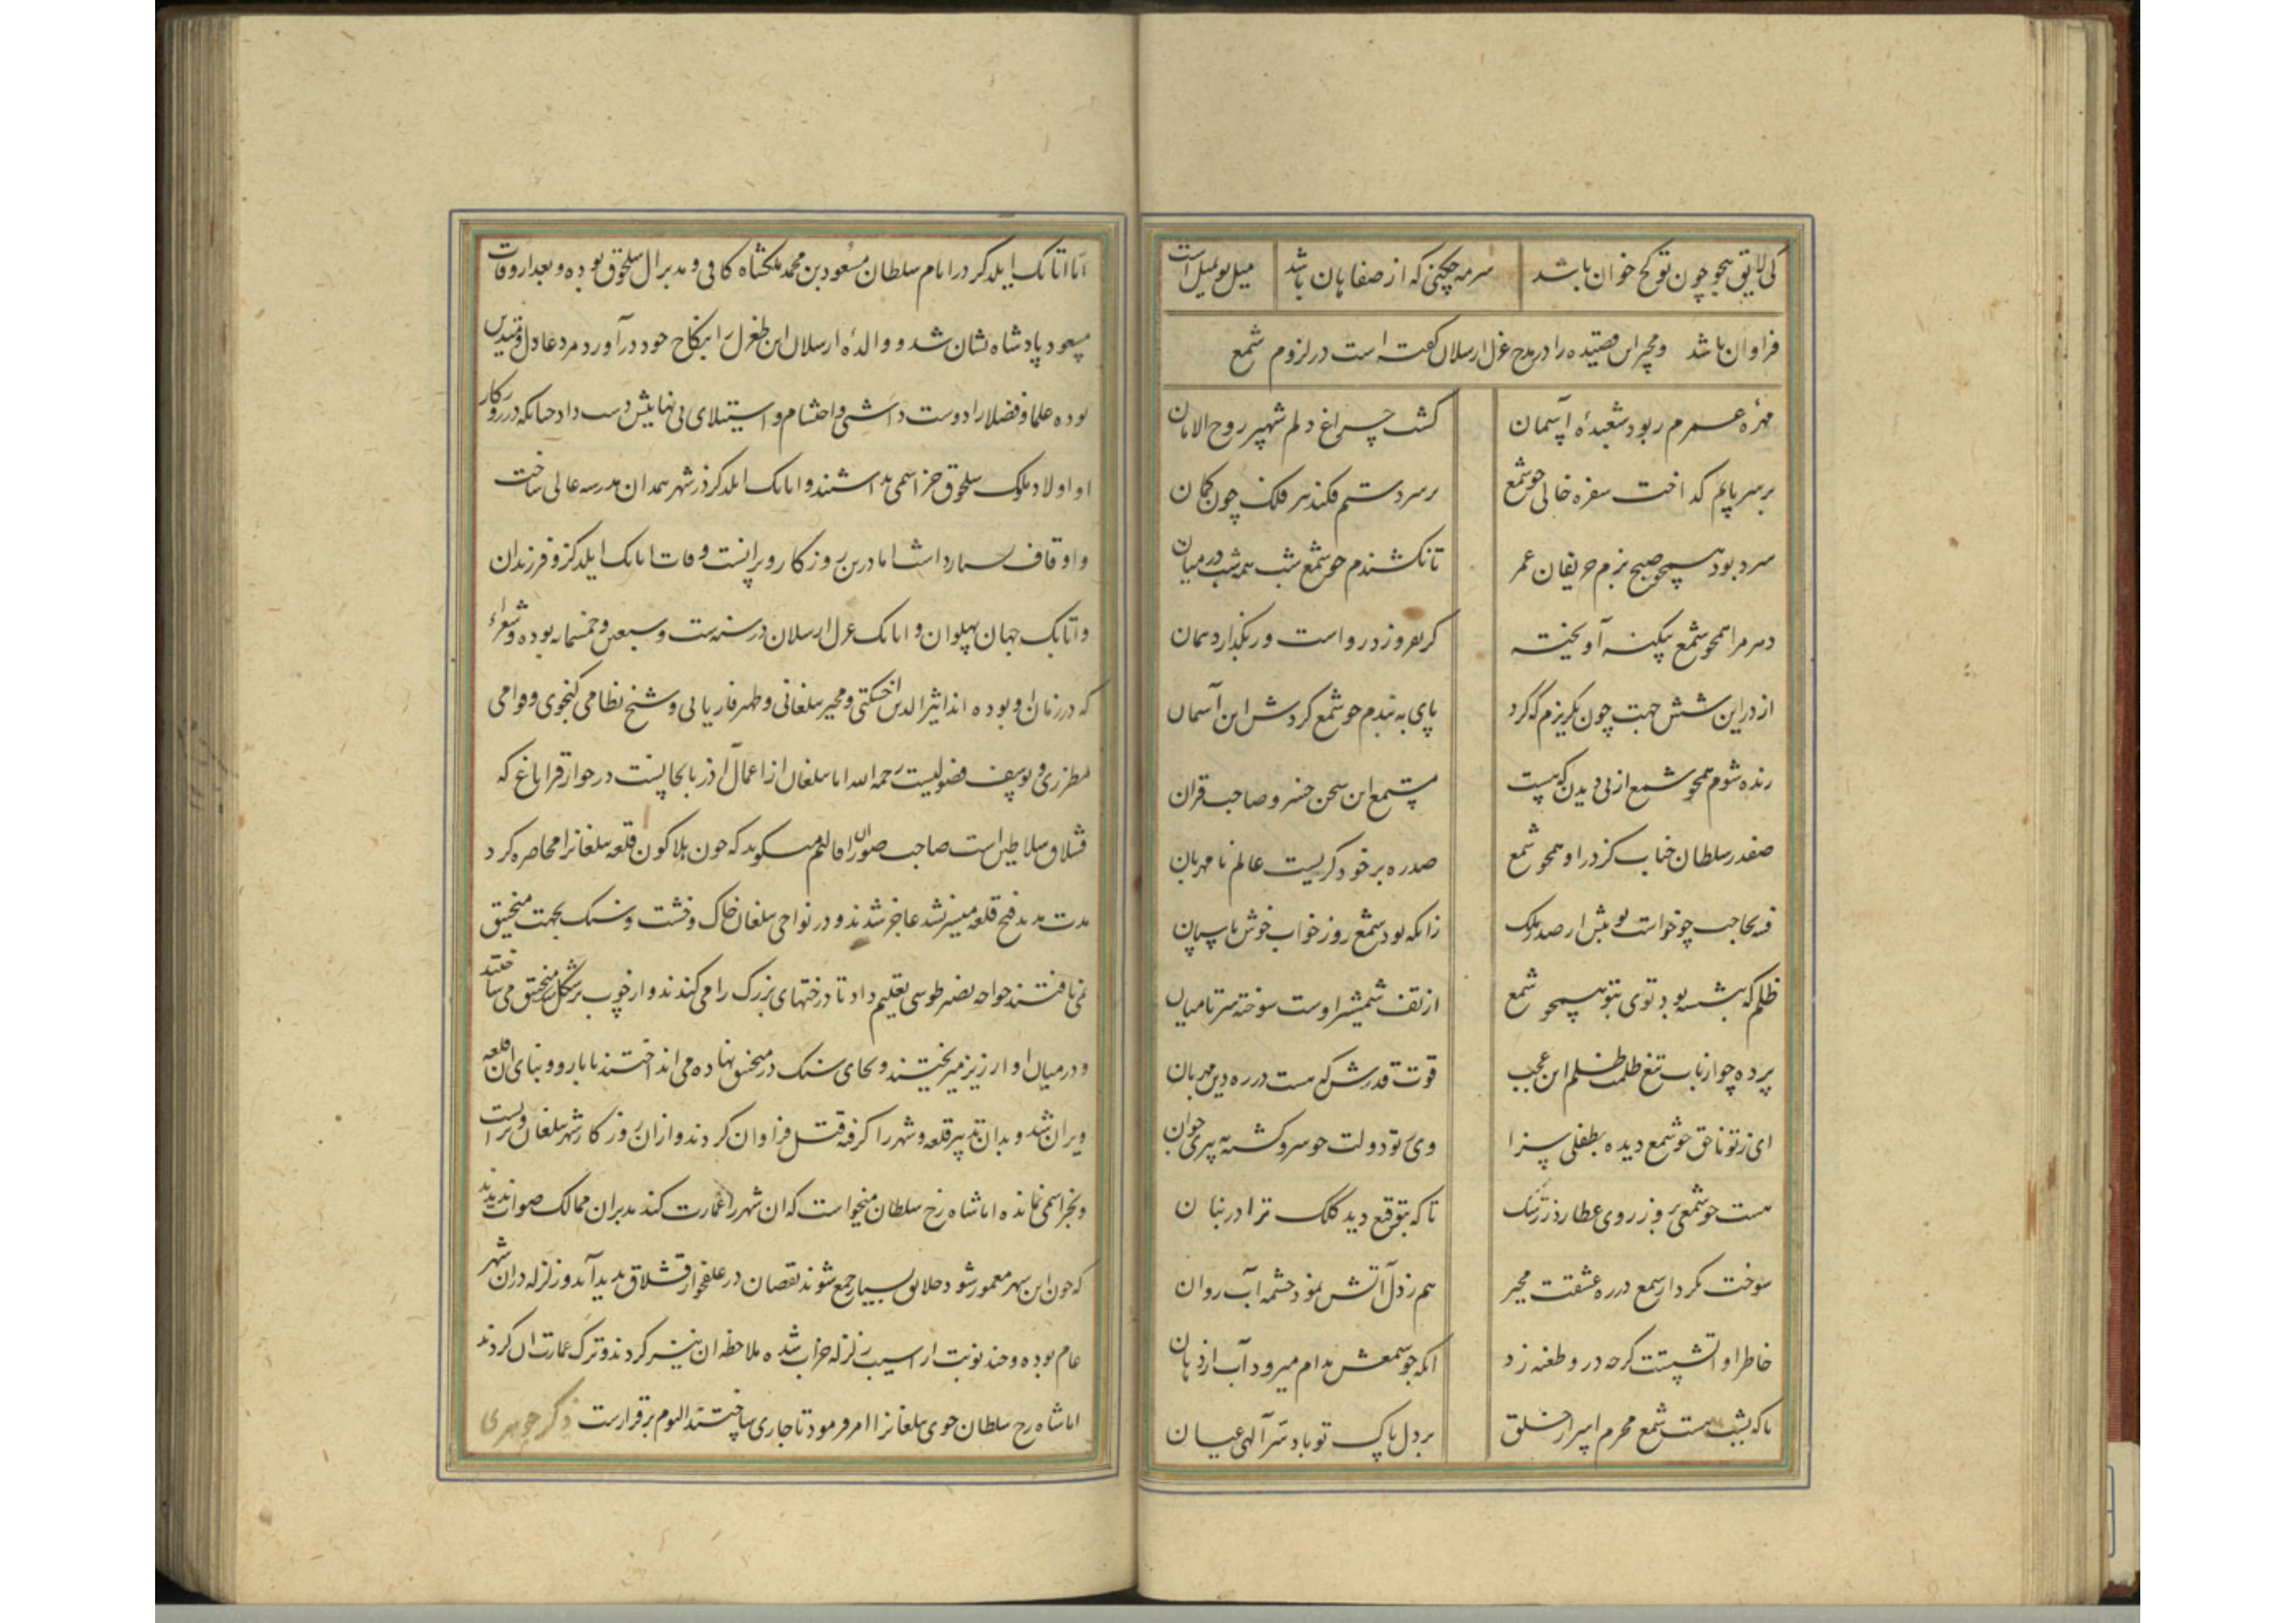 کی لایق هجو چون تو کخ خوان باشد سرمه چکنی که از صفاهان باشد میل تو بمیل است
فراوان باشد ومجیر این قصیده را در مدح قزل ارسلان گفته است در لزوم شمع
مهره عمرم ربود شعبده آسمان کشت چراغ دلم شهپر روح الامان
برسر پایم کداخت سفره خالی جو شمع برسر دستم فکند سر فلک چون کمان
سرد بود همچو صبح بزم حریفان عمر تا نکشندم جو شمع شب همه شب در میان
در مرا همجو شمع بیکنه آویخته کر بفروزد رواست ور بکذارد همان
از در این شش جهت چون بکریزم که کرد پای به بندم جو شمع کردش این آسمان
زنده شوم همجو شمع از پی دیدن که هست مستمع این سخن خسرو صاحب قران
صفدر سلطان جناب کز در او همجو شمع صد ره بر خود کریست عالم نامهربان
فتنه بحاجب چو خواست نوبتش ار صد ملک زانکه بود شمع روز خواب خوش پاسبان
ظلم که بنشسته بود توی بتو همجو شمع از تف شمشیر اوست سوخته سر تا میان
پرده چو از تاب تیغ ظلمت ظلم این عجب قوت قدرش که هست در ره دین مهربان
ای ز تو ناحق جو شمع دیده بطفلی سزا وی ز تو دولت جو سرو کشته پیری جوان
هست جو شمعی بروز روی عطارد ز رشک تا که بتوقیع دید کلک ترا در بنان
سوخت بکردار شمع در ره عشقت مجیر هم ز دل آتش نمود چشمه آب روان
خاطر او آتشیست کرجه درو طعنه زد انکه جو شمعش مدام میرود آب از دهان
تا که بشب هست شمع محرم اسرار خلق بر دل پاک تو باد سر آلهی عیان
اما اتابک ایلدکز در ایام سلطان مسعود بن محمد ملکشاه کافی و مدبر ال سلجوق بوده و بعد از وفات
مسعود پادشاه نشان شد و والده ارسلان ابن طغرل را بنکاح خود درآورد مرد عادل و متدین
بوده علما و فضلا را دوست داشتی و احتشام و استیلای بی نهایتش دست داد جنانکه در روزکار
او اولاد ملوک سلجوق جز اسمی نداشتند و اتابک ایلدکز در شهر همدان مدرسه عالی ساخت
و اوقاف بسیار داشت اما درین روزکار ویرانست وفات اتابک ایلدکز و فرزندان
و اتابک جهان پهلوان و اتابک قزل ارسلان در سنه ست و سبعین و خمسمایه بوده و شعراء
که در زمان او بوده اند اثیر الدین اخسکتی و مجیر بیلقانی و ظهیر فاریابی و شیخ نظامی کنجوی و قوامی
مطرزی و یوسف فضولیست رحمه الله اما بیلقان از اعمال آذربایجانست در جوار قراباغ که
قشلاق سلاطین است صاحب صور الاقالیم میکوید که جون هلاکو خان قلعه بیلقانرا محاصره کرد
مدت مدید فتح قلعه میسر نشد عاجز شدند و در نواحی بیلقان خاک و خشت و سنک بجهت منجنیق
نمی یافتند خواجه نصیر طوسی تعلیم داد تا درختهای بزرک را می کندند و از چوب بر شکل سنک منجنیق می ساختند
و در میان او ارزیز میریختند و بجای سنک در منجنیق نهاده می انداختند تا بارو و بنای ان قلعه
ویران شد و بدان تدبیر قلعه و شهر را کرفته قتل فراوان کردند و ازان روزکار شهر بیلقان ویرانست
و بجز اسمی نمانده اما شاه رخ سلطان میخواست که ان شهر را عمارت کند مدبران ممالک صواب ندیدند
که جون این شهر معمور شود و خلایق بسیار جمع شوند نقصان در علفخوار قشلاق پدید آید و زلزله دران شهر
عام بوده و چند نوبت از آسیب زلزله خراب شده ملاحظه ان نیز کردند و ترک عمارت ان کردند
اما شاه رخ سلطان جوی بیلقانرا امر فرمود تا جاری ساختند الیوم برقرارست ذکر جوهری